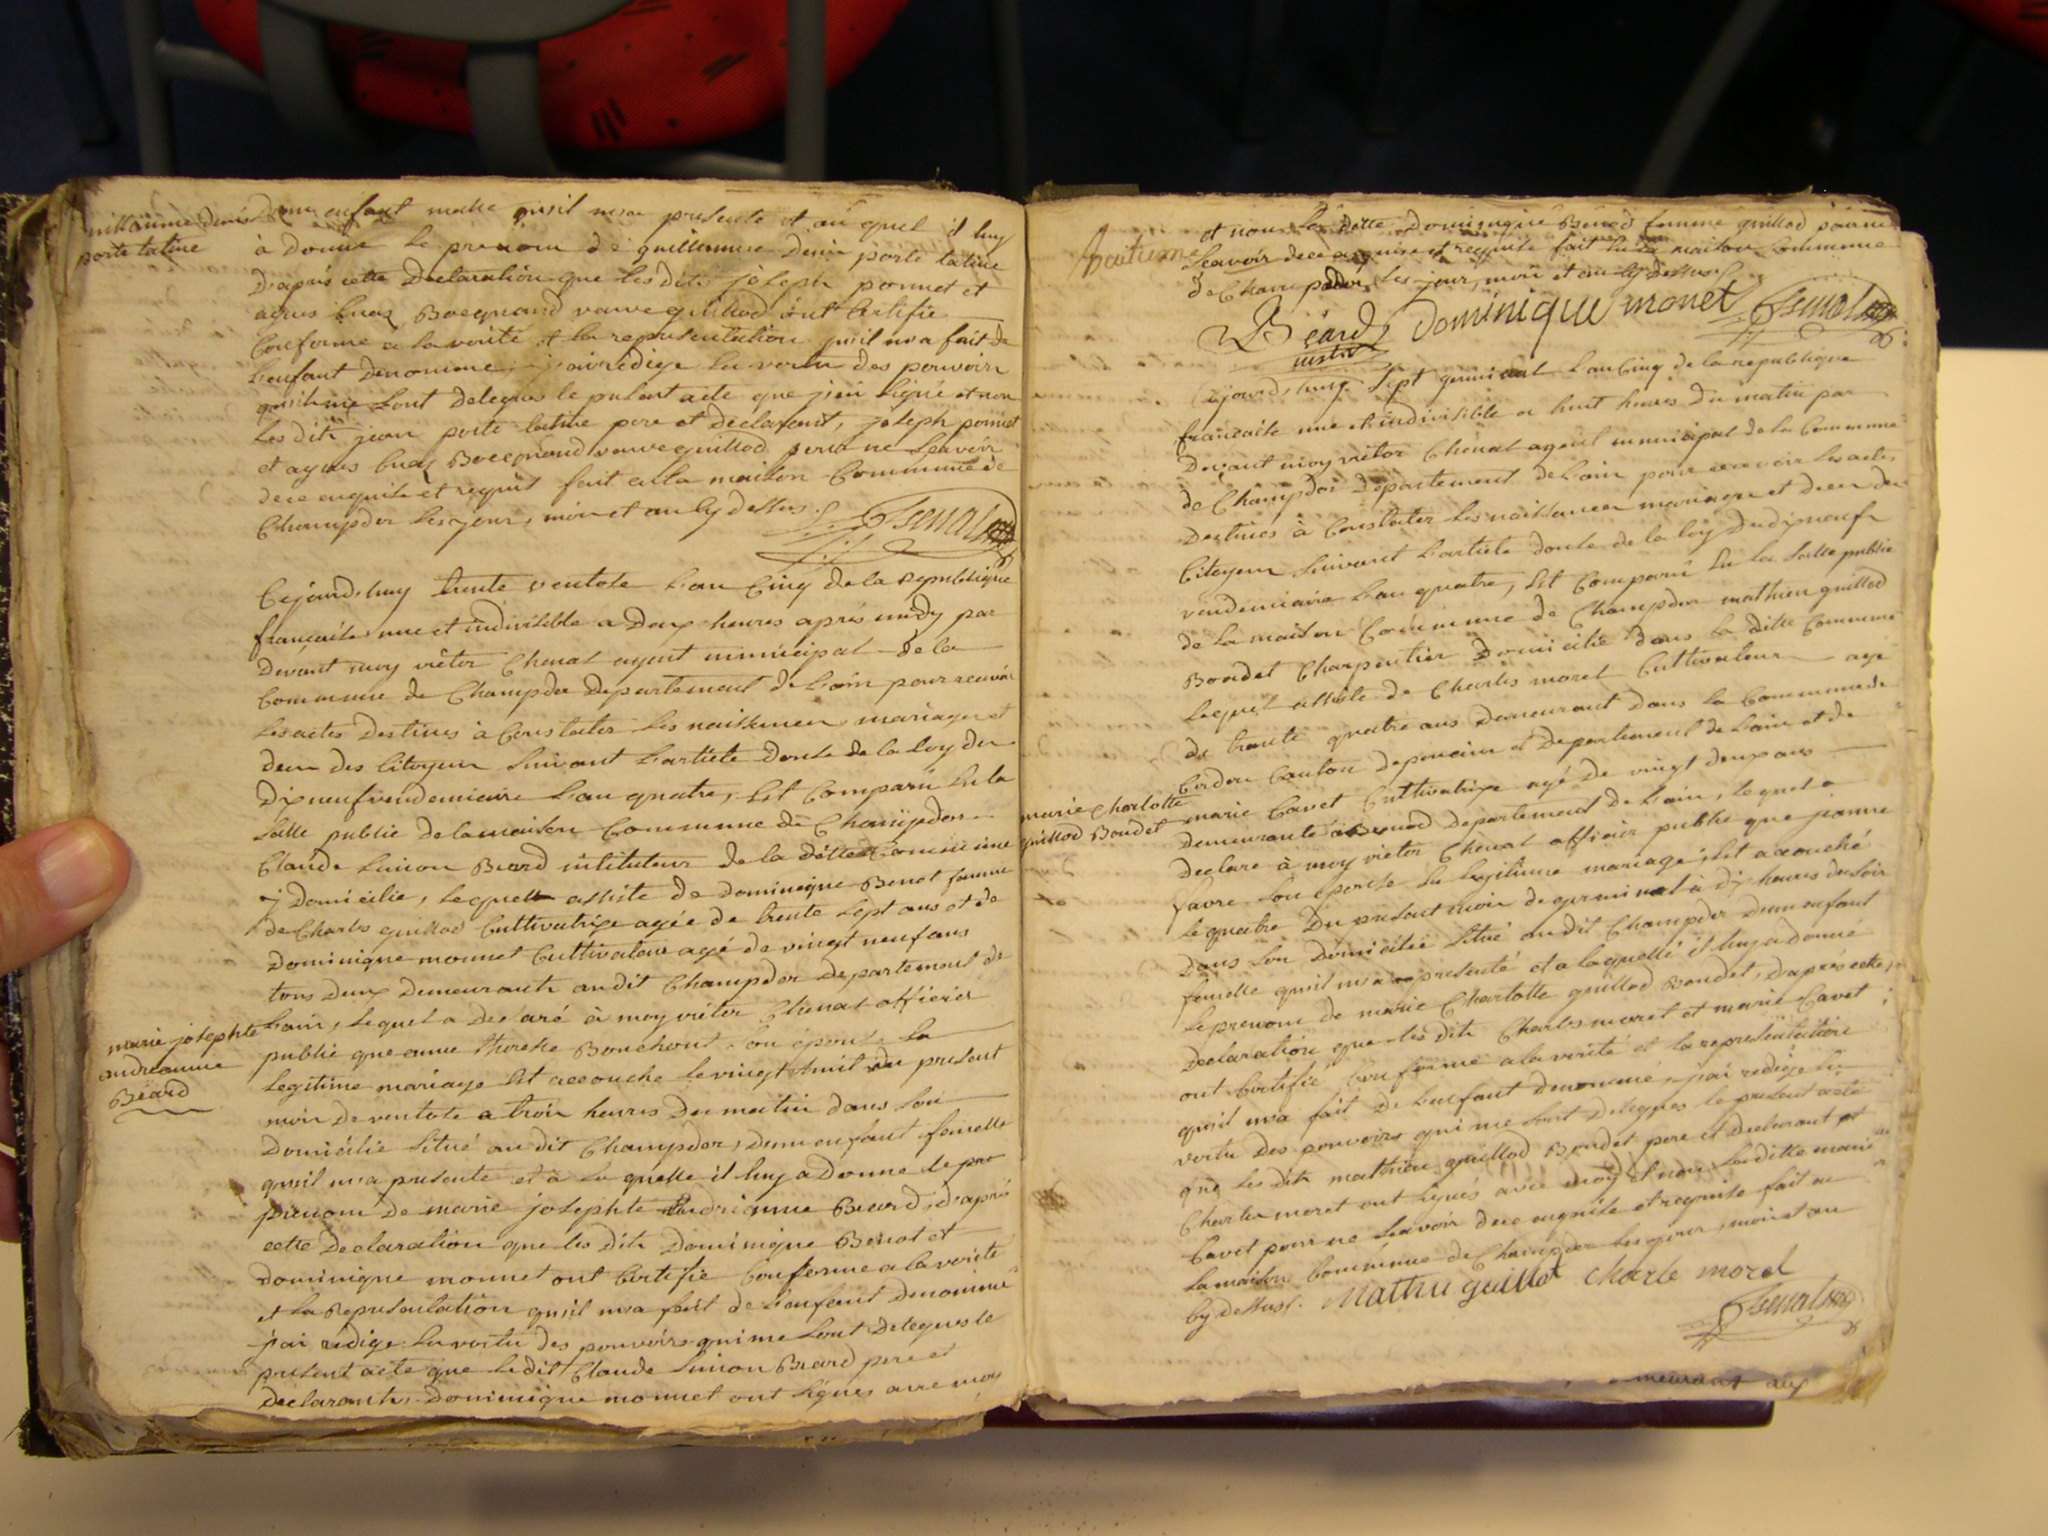 guillaume denis
porte latine
D'un enfant male qu'il m'a presenté et au quel il luy
à Donné Le prenom de guillaume Denis porte latine
D'après cette Declaration que les dits joseph ponnet et
agnes Bocquand vauve guillod ont Certifié
Conforme a la verité et la representation qu'il m'a fait de
L'enfant Denommé, j'ai rédigé En vertu des pouvoirs
qui me Sont Delegués le present acte que j'ai Signé et non
Les dits jean porte latine pere et Declarant, joseph ponnet
et agnes Bocquand vauve guillod pour ne Scavoir
de ce enquis et requis fait a la maison Commune de
Champdor Les jour, mois et an Cy dessus.
Cejourd'huy trente ventose L'an Cinq de la Republique
française une et indivisible a Deux heures après midy par
Devant moy victor Chenal agent municipal de la
Commune de Champdor Departement de L'ain pour recevoir
Les actes Destinés à Constater Les naissances mariages et
deces des Citoyens Suivant L'article Douse de la Loy du
Dix neuf vendemiaire L'an quatre, Est Comparu En la
Salle public de la maison Commune de Champdor
Claude Simon Beard instituteur de la Ditte Commune
y Domicilié, Lequel assisté de Dominique Benot famme
de Charles guillod Cultivatrice agée de trente Sept ans et de
Dominique monnet Cultivateur agé de vingt neuf ans
tous Deux Demeurants audit Champdor Departement de
L'ain, Lequel a Declaré à moy victor Chenal officier
marie josephte
andrianne
Béard
public que anne therese Bouchout son épouse En
Legitime mariage Est accouché le vingt huit du present
mois de ventose a trois heures Du matin dans Son
Domicilie Situé au dit Champdor, D'un enfant femelle
qu'il m'a presenté et à la quelle il luy a Donné le pre
prenom De marie josephte andrianne Beard, D'après
cette Declaration que les Dits Dominique Benot et
Dominique monnet ont Certifié Conforme a la verité
et la Representation qu'il m'a fait de L'enfant Denommé
j'ai redigé En vertu des pouvoirs qui me Sont Delegués le
present acte que Le dit Claude Simon Beard pere et
Declarant, Dominique monnet ont Signés avec moy
et non La Ditte Dominique Benod famme guillod pour ne
Scavoir de ce enquise et requise fait En la maison Commune
de Champdor, Les jour, mois et an Cy dessus
Béard Dominique monet
instit
Cejourd'huy Sept germinal L'an Cinq de la republique
française une et indivisible a huit heures Du matin par
Devant moy victor Chenal agent municipal de la Commune
de Champdor Departement de L'ain pour recevoir Les actes
Destinés à Constater Les naissances mariages et deces des
Citoyens Suivant L'article douse de la loy Du dix neuf
vendemiaire L'an quatre, Est Comparu En la Salle public
de La maison Commune de Champdor mathieu guillod
Boudet Charpentier Domicilié Dans la ditte Commune
Lequel assisté de Charles moret Cultivateur agé
de trente quatre ans Demeurant dans La Commune de
Cerdon Canton de poncin et Departement de L'ain et de
marie Charlotte
guillod Boudet
marie Cavet Cultivatrice agé de vingt deux ans
Demeurante à Departement de L'ain, lequel a
Declaré à moy victor Chenal officier public que jeanne
favre Son épouse En Legitime mariage Est accouché
Le quatre Du present mois de germinal à dix heures du Soir
Dans Son Domicilie Situé au dit Champdor D'un enfant
femelle qu'il m'a representé et a laquelle il luy a donné
Le prenom de marie Charlotte guillod Boudet, D'après cette
Declaration que les dits Charles moret et marie Cavet
ont Certifié Conforme a la verité et la representation
qu'il m'a fait De L'enfant Denommé, j'ai redigé En
vertu Des pouvoirs qui me Sont Delegués le present acte
que Les dits mathieu guillod Boudet pere et Declarant et
Charles moret ont Signés avec moy et non La ditte marie
Cavet pour ne Scavoir de ce enquise et requise fait a
La maison Commune de Champdor Les jour, mois et an
Cy dessus. Mathieu guillot Charle morel